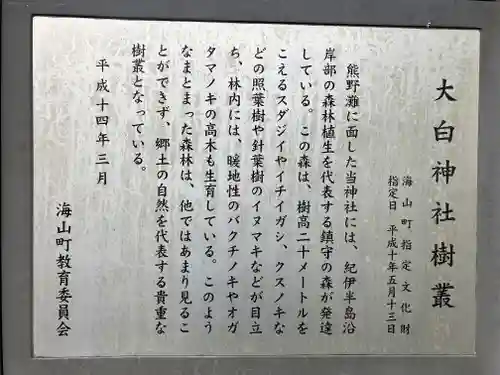 大白神社樹叢
海山町指定文化財
指定日　平成十年五月十三日
熊野灘に面した当神社には、紀伊半島沿
岸部の森林植生を代表する鎮守の森が発達
している。この森は、樹高二十メートルを
こえるスダジイやイチイガシ、クスノキな
どの照葉樹や針葉樹のイヌマキなどが目立
ち、林内には、暖地性のバクチノキやオガ
タマノキの高木も生育している。このよう
なまとまった森林は、他ではあまり見るこ
とができず、郷土の自然を代表する貴重な
樹叢となっている。
平成十四年三月
海山町教育委員会